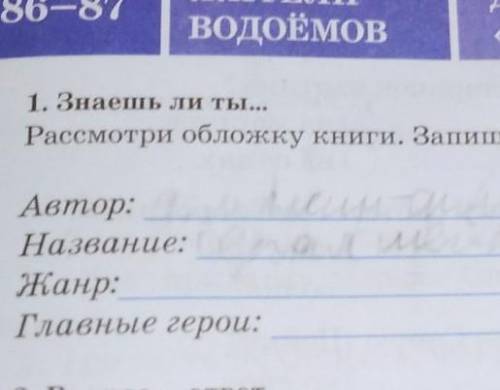 86–87
ВОДОЁМОВ
1. Знаешь ли ты...
Рассмотри обложку книги. Запиш
Автор:
Название:
Жанр:
Главные герои: